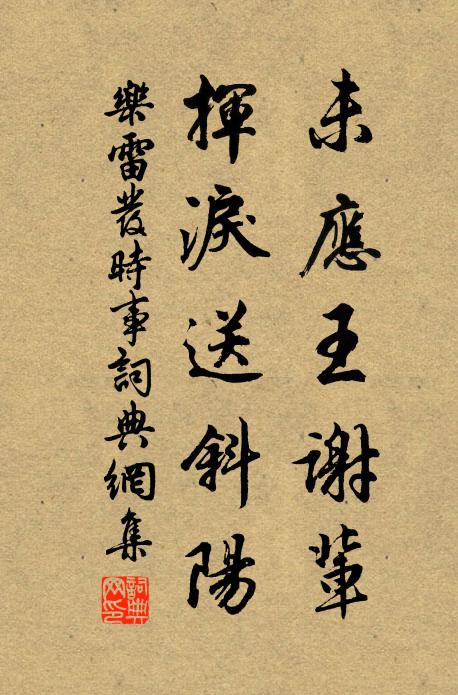 未應王謝輩
揮淚送斜陽
樂雷發時事詞典網集
詞典網印